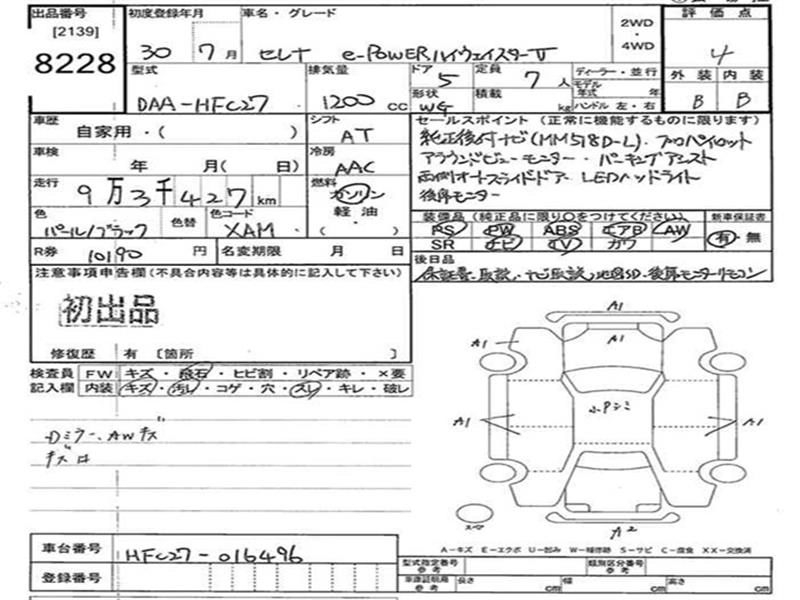 出品番号 初度登録年月 車名・グレード 2WD・4WD 評価点
[2139]
8228 30 7月 セレナ e-POWERハイウェイスターV 4
型式 排気量 ドア 定員 ディーラー・並行 外装 内装
DAA-HFC27 1200 CC 5 7人 モデル年式 年 B B
形状 積載 kg ハンドル 左・右
WG
車歴 シフト セールスポイント(正常に機能するものに限ります)
自家用・( ) AT 純正後付ナビ(MM518D-L)、プロパイロット
車検 冷房 アラウンドビューモニター・パーキングアシスト
年 月( 日) AAC 両側オートスライドドア LEDヘッドライト
走行 燃料 後席モニター
9万3千427km ガソリン
軽油・( )
色 色替 色コード 装備品(純正品に限り〇をつけてください) 新車保証書
パール/ブラック XAM PS PW ABS エアB AW 有・無
SR ナビ TV カワ
R券 10190 円 名変期限 月 日 後日品
保証書、取説、ナビ取説、地図SD、後席モニターリモコン
注意事項申告欄(不具合内容等は具体的に記入して下さい)
初出品
修復歴 有〔箇所 〕
検査員 FW キズ・飛石・ヒビ割・リペア跡・×要
記入欄 内装 キズ・汚レ・コゲ・穴・スレ・キレ・破レ
Dミラー、AWキズ
A1
A1 A1
A1 A1
A2
車台番号 HFC27-016496
登録番号
A-キズ E-エクボ U-凹み W-補修跡 S-サビ C-腐食 XX-交換済
型式指定番号 参考 類別区分番号 参考
車庫証明用 参考 長さ cm 幅 cm 高さ cm